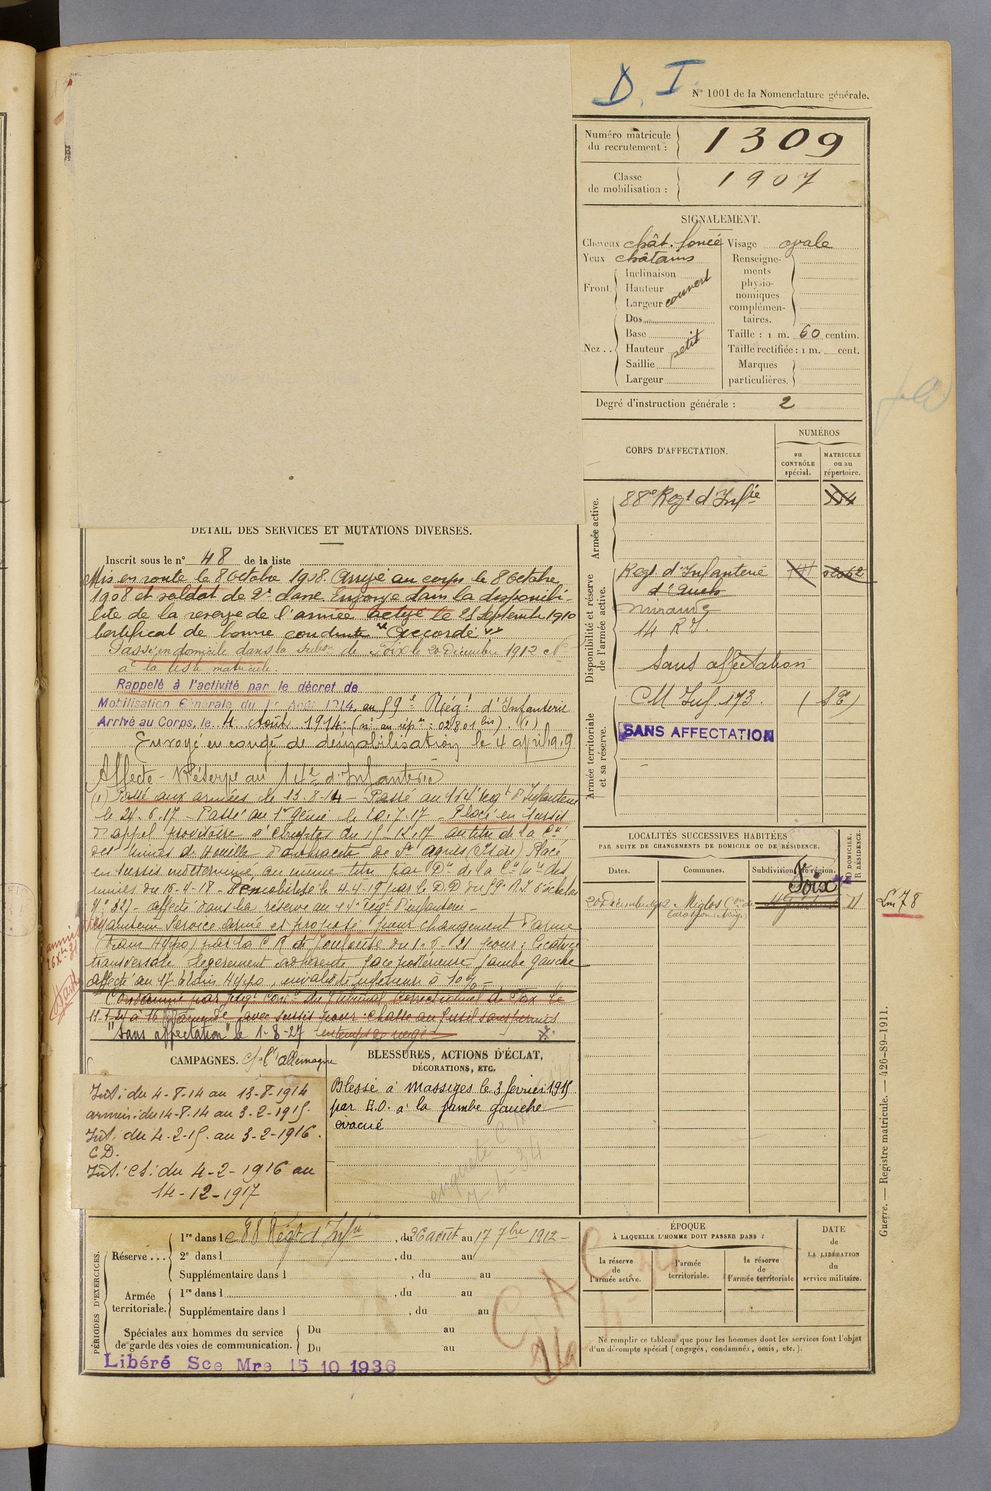 D. I.
N° 1001 de la Nomenclature générale.
Numéro matricule du recrutement : 1309
Classe de mobilisation : 1907
SIGNALEMENT.
Cheveux chât. foncé Visage ovale
Yeux châtains Renseigne-
ments
physio-
nomiques
complémen-
taires.
Front. Inclinaison
Hauteur
Largeur couvert
Nez .. Dos
Base
Hauteur petit
Saillie
Largeur
Taille : 1 m. 60 centim.
Taille rectifiée : 1 m. cent.
Marques
particulières.
Degré d'instruction générale : 2
CORPS D'AFFECTATION.
NUMÉROS
au CONTRÔLE spécial.
MATRICULE ou au répertoire.
Armée active.
88e Regt d'Infie
Disponibilité et réserve de l'armée active.
Regt d'Infanterie
d'Auch
Mirande
14 R.I.
Sans affectation
Armée territoriale et sa réserve.
CM Inf. 173.
SANS AFFECTATION
DÉTAIL DES SERVICES ET MUTATIONS DIVERSES.
Inscrit sous le n° 48 de la liste
Mis en route le 8 Octobre 1908. Arrivé au corps le 8 Octobre
1908 et soldat de 2e classe. Envoyé dans la disponibi-
lité de la réserve de l'armée active le 25 Septembre 1910
Certificat de bonne conduite "Accordé"
Passé en domicile dans la subon de Foix le 20 Décembre 1912
à la liste matricule.
Rappelé à l'activité par le décret de
Mobilisation Générale du 1er Août 1914. au 59e Régt d'Infanterie
Arrivé au Corps, le 4 Août 1914. (1)
Envoyé en congé de démobilisation le 4 avril 1919
Affecté Réserve au 14e d'Infanterie
(1) Passé aux armées le 13.8.14 - Passé au Regt d'Infanterie
le 21.6.17 - Passé au 1er Génie - le 20.7.17 - Placé en sursis
d'appel provisoire à compter du 12.17 au titre de la Cie
des mines de Houille d'anthracite de St Agnès (Isère) Placé
en sursis au même titre par Don de la
mines du 16-4-18 - Démobilisé le 4.4.19 par le D.D du 59e R.I.
affecté dans la réserve au 14e Regt d'Infanterie -
Maintenu service armé et proposé pour changement d'arme
par la C R de Toulouse du 1.6.21 pour : cicatrice
transversale légèrement adhérente face postérieure jambe gauche
invalidité inférieure à 10%
Condamné par Jugt du Tribunal Correctionnel de Foix le
avec sursis pour chasse au fusil sans permis
"Sans affectation" le 1-8-27
CAMPAGNES. C/ l'allemagne
Int: du 4-8-14 au 13-8-1914
armées: du 14-8-14 au 3-2-1915.
Int. du 4-2-15. au 3-2-1916.
C.D.
Int: cs: du 4-2-1916 au
14-12-1917
BLESSURES, ACTIONS D'ÉCLAT,
DÉCORATIONS, ETC.
Blessé à Massiges le 3 février 1915
par E.O. à la jambe gauche
évacué
enquête C.
7-4-34
LOCALITÉS SUCCESSIVES HABITÉES
PAR SUITE DE CHANGEMENTS DE DOMICILE OU DE RÉSIDENCE.
Dates. Communes. Subdivision de région. D DOMICILE. R RÉSIDENCE.
Foix
20 décembre 1912 Miglos
Lin 78
PÉRIODES D'EXERCICES.
Réserve ... 1re dans le 88 Régt d'Infie, du 26 août au 17 7bre 1912 -
2e dans l , du au
Supplémentaire dans l , du au
Armée territoriale. 1re dans l , du au
Supplémentaire dans l , du au
Spéciales aux hommes du service
de garde des voies de communication. Du au
Du au
Libéré Sce Mre 15 10 1936
ÉPOQUE
À LAQUELLE L'HOMME DOIT PASSER DANS :
la réserve de l'armée active.
l'armée territoriale.
la réserve de l'armée territoriale
DATE de LA LIBÉRATION du service militaire.
Ne remplir ce tableau que pour les hommes dont les services font l'objet
d'un décompte spécial (engagés, condamnés, omis, etc.).
Guerre. — Registre matricule. — 426-89-1911.